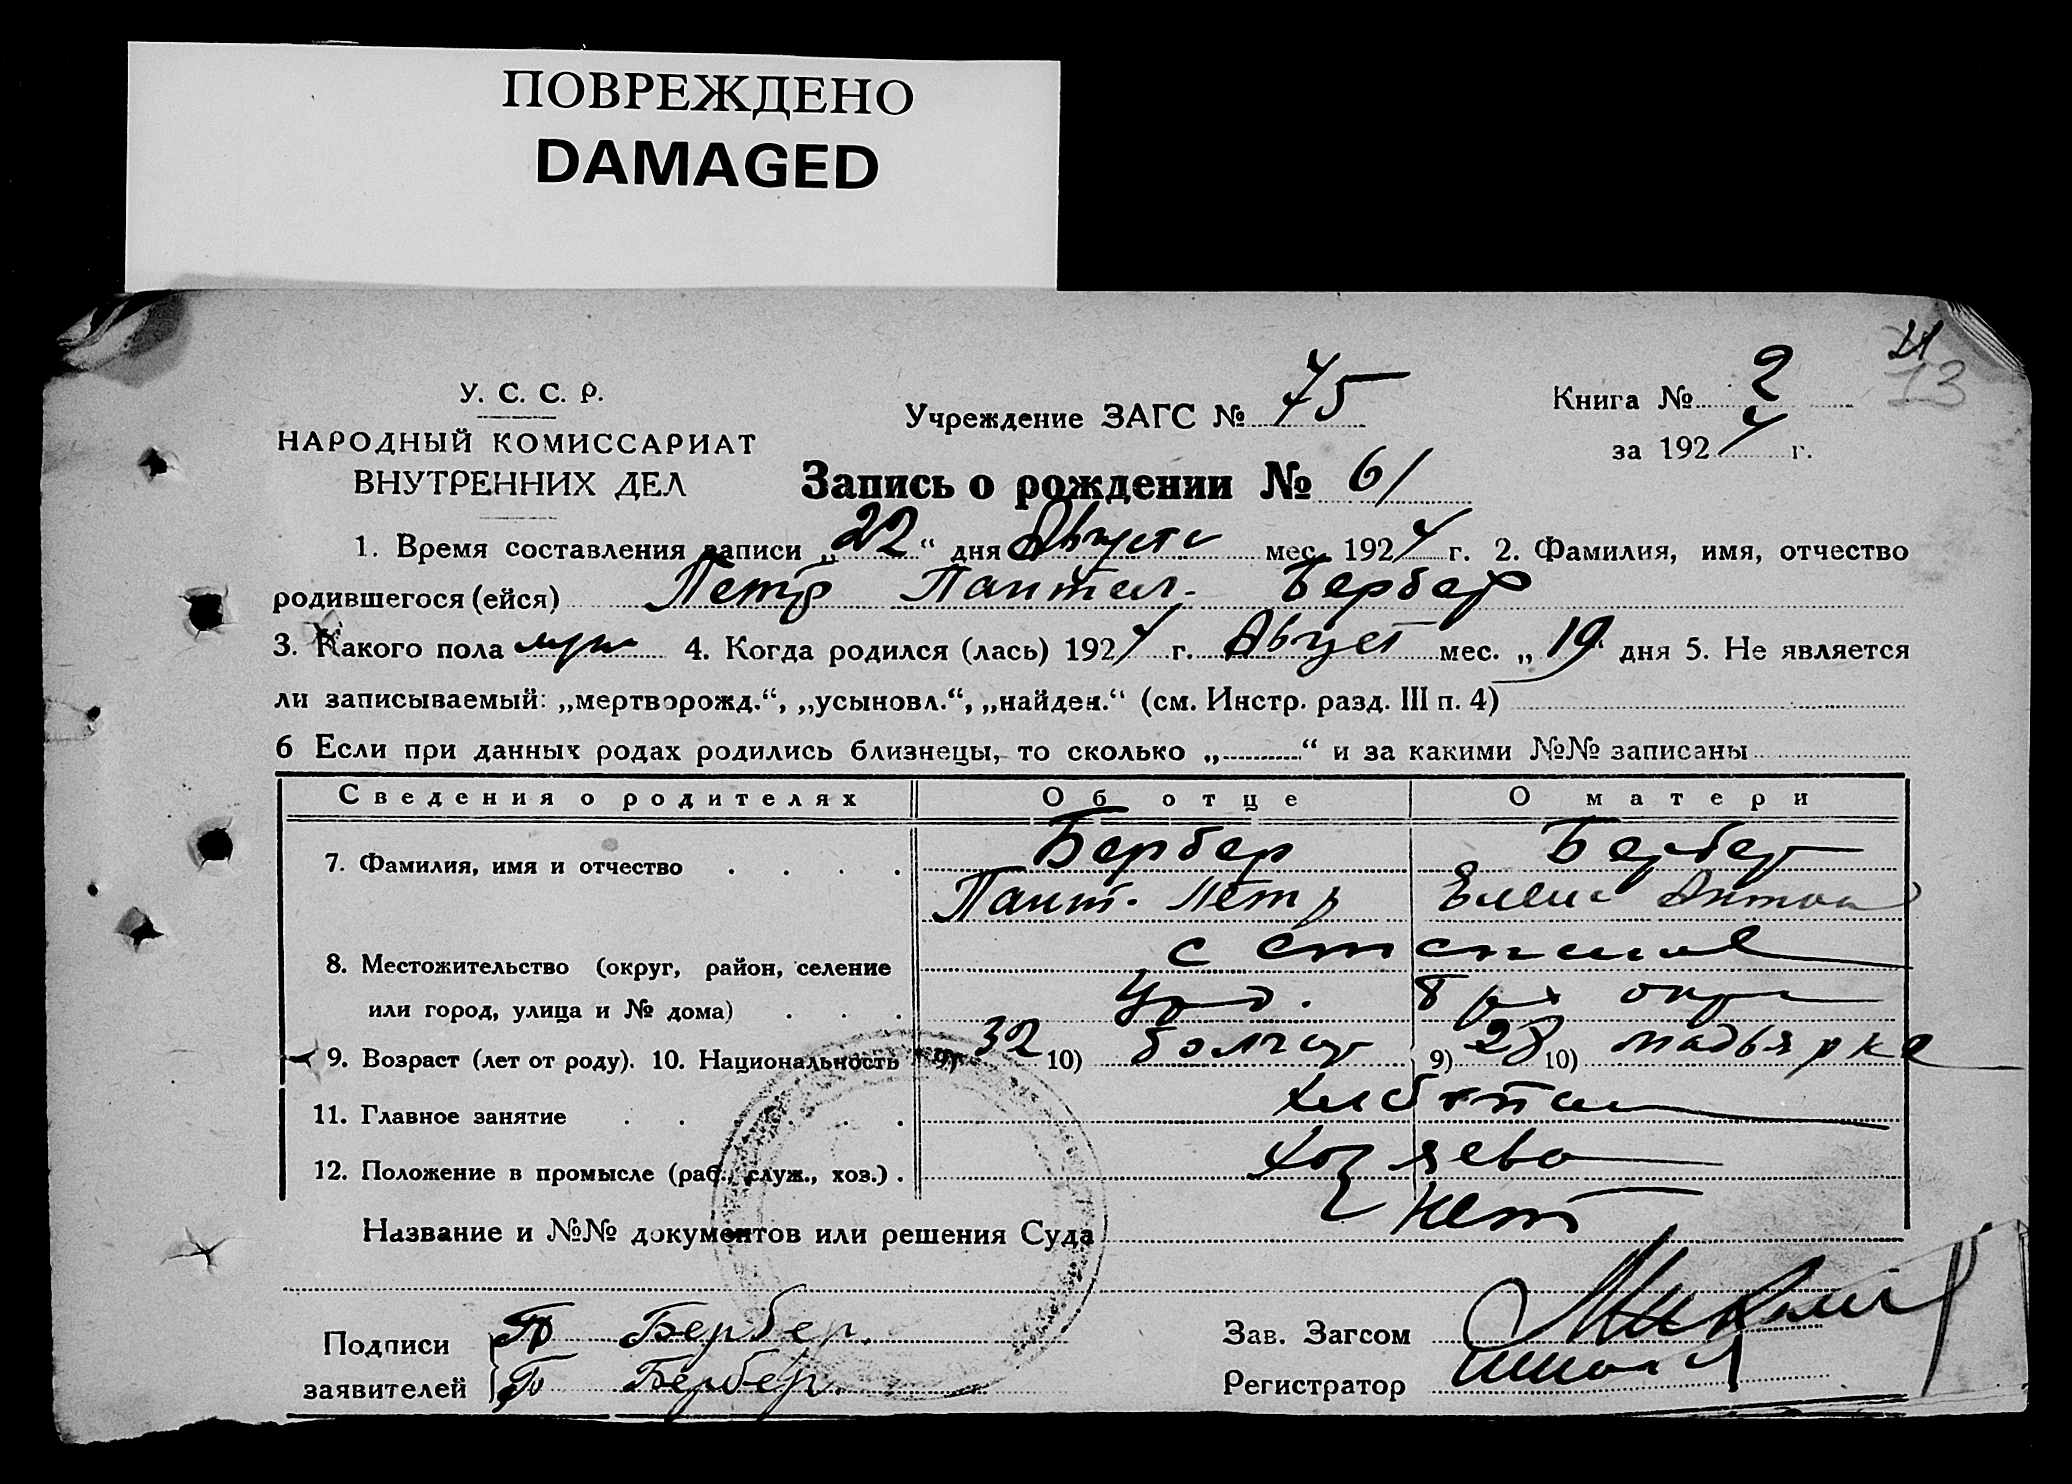 ПОВРЕЖДЕНО
DAMAGED
21
13
У. С. С. Р.
НАРОДНЫЙ КОМИССАРИАТ
ВНУТРЕННИХ ДЕЛ
Учреждение ЗАГС № 75
Книга № 2
за 1924 г.
Запись о рождении № 61
1. Время составления записи „22“ дня Августа мес. 1924 г. 2. Фамилия, имя, отчество
родившегося (ейся) Петр Пантел. Бербер
3. Какого пола муж 4. Когда родился (лась) 1924 г. Август мес. „19 дня 5. Не является
ли записываемый: „мертворожд.“, „усыновл.“, „найден.“ (см. Инстр. разд. III п. 4)
6 Если при данных родах родились близнецы, то сколько „ “ и за какими №№ записаны
Сведения о родителях Об отце О матери
7. Фамилия, имя и отчество . . . . Бербер Бербер
Пант. Петр Елена Антон
8. Местожительство (округ, район, селение с
или город, улица и № дома) . . .
9. Возраст (лет от роду). 10. Национальность 9) 32 10) болгар 9) 28 10) мадьярка
11. Главное занятие . . . . .
12. Положение в промысле (раб., служ., хоз.) . хозяева
Название и №№ документов или решения Суда нет
Подписи Бербер.
заявителей Бербер.
Зав. Загсом
Регистратор